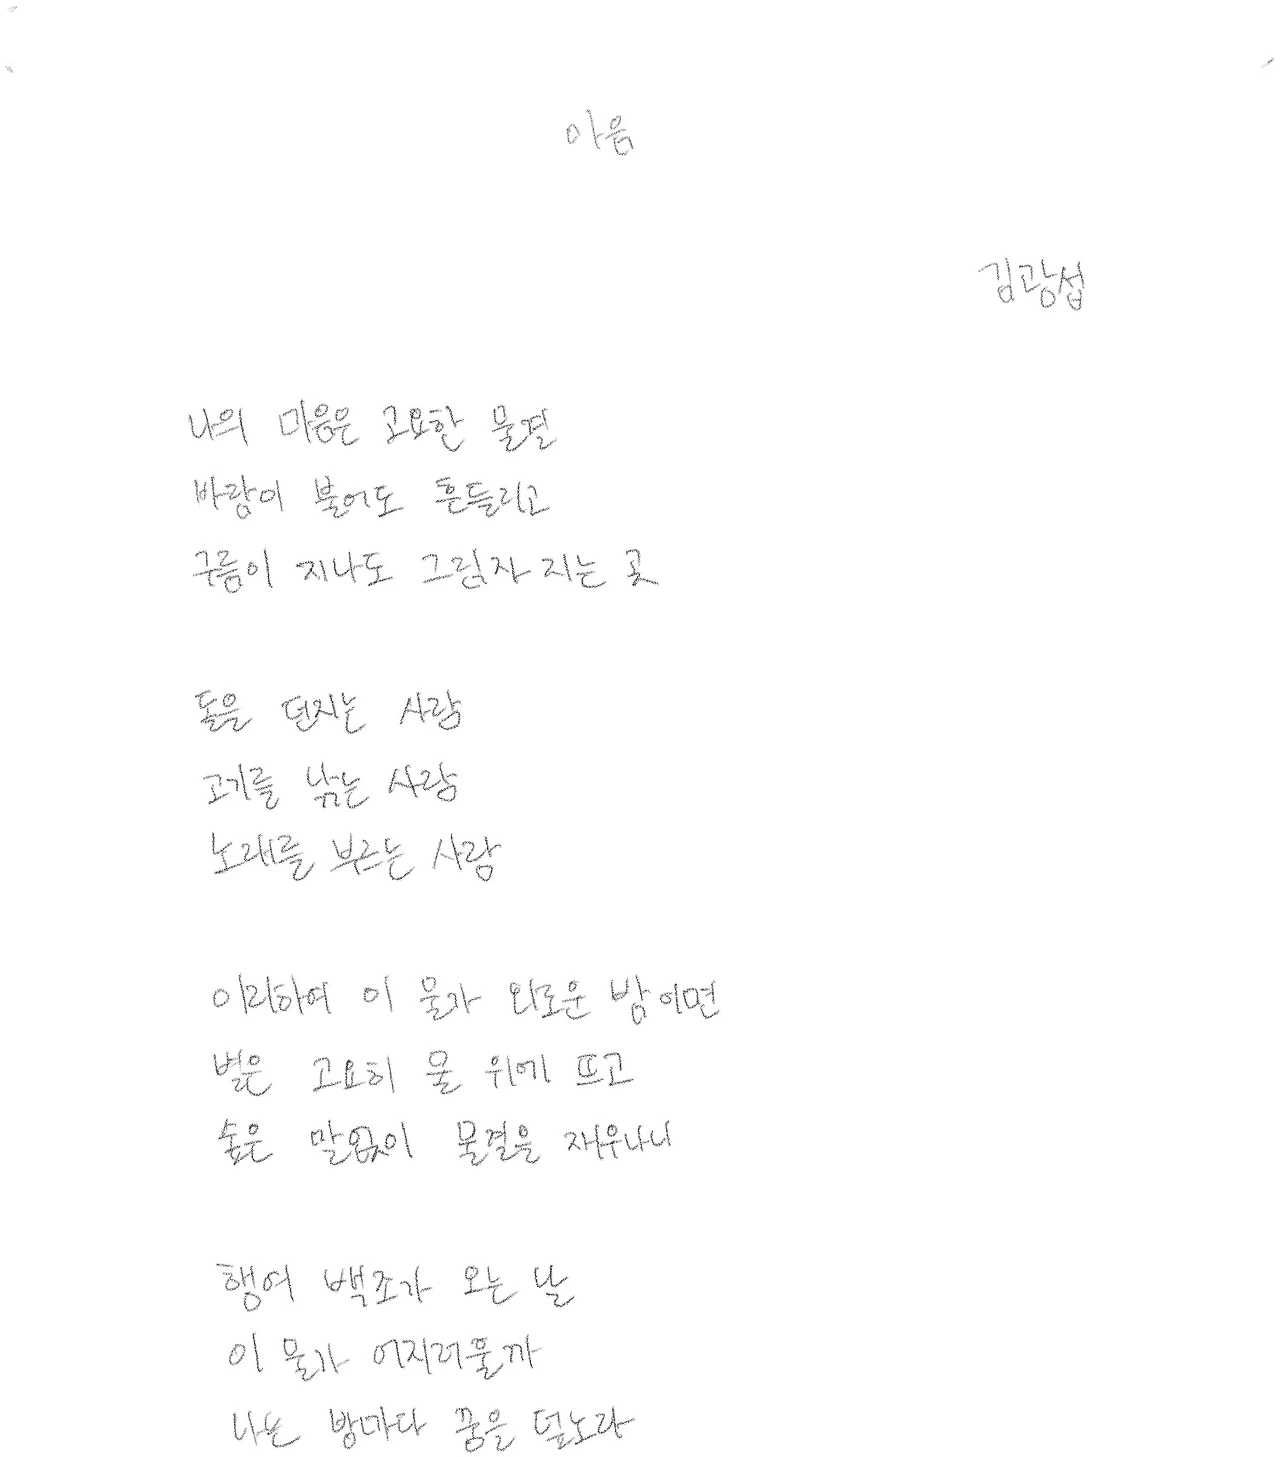 마음
김광섭
나의 마음은 고요한 물결
바람이 불어도 흔들리고
구름이 지나도 그림자 지는 곳
돌을 던지는 사람
고기를 낚는 사람
노래를 부르는 사람
이리하여 이 물가 외로운 밤이면
별은 고요히 물 위에 뜨고
숲은 말없이 물결을 재우나니
행여 백조가 오는 날
이 물가 어지러울까
나는 밤마다 꿈을 덮노라